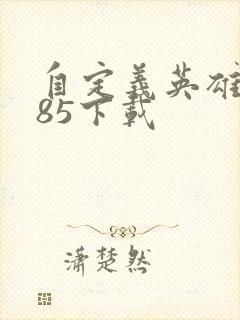 自定義英雄
85下載
瀟楚然